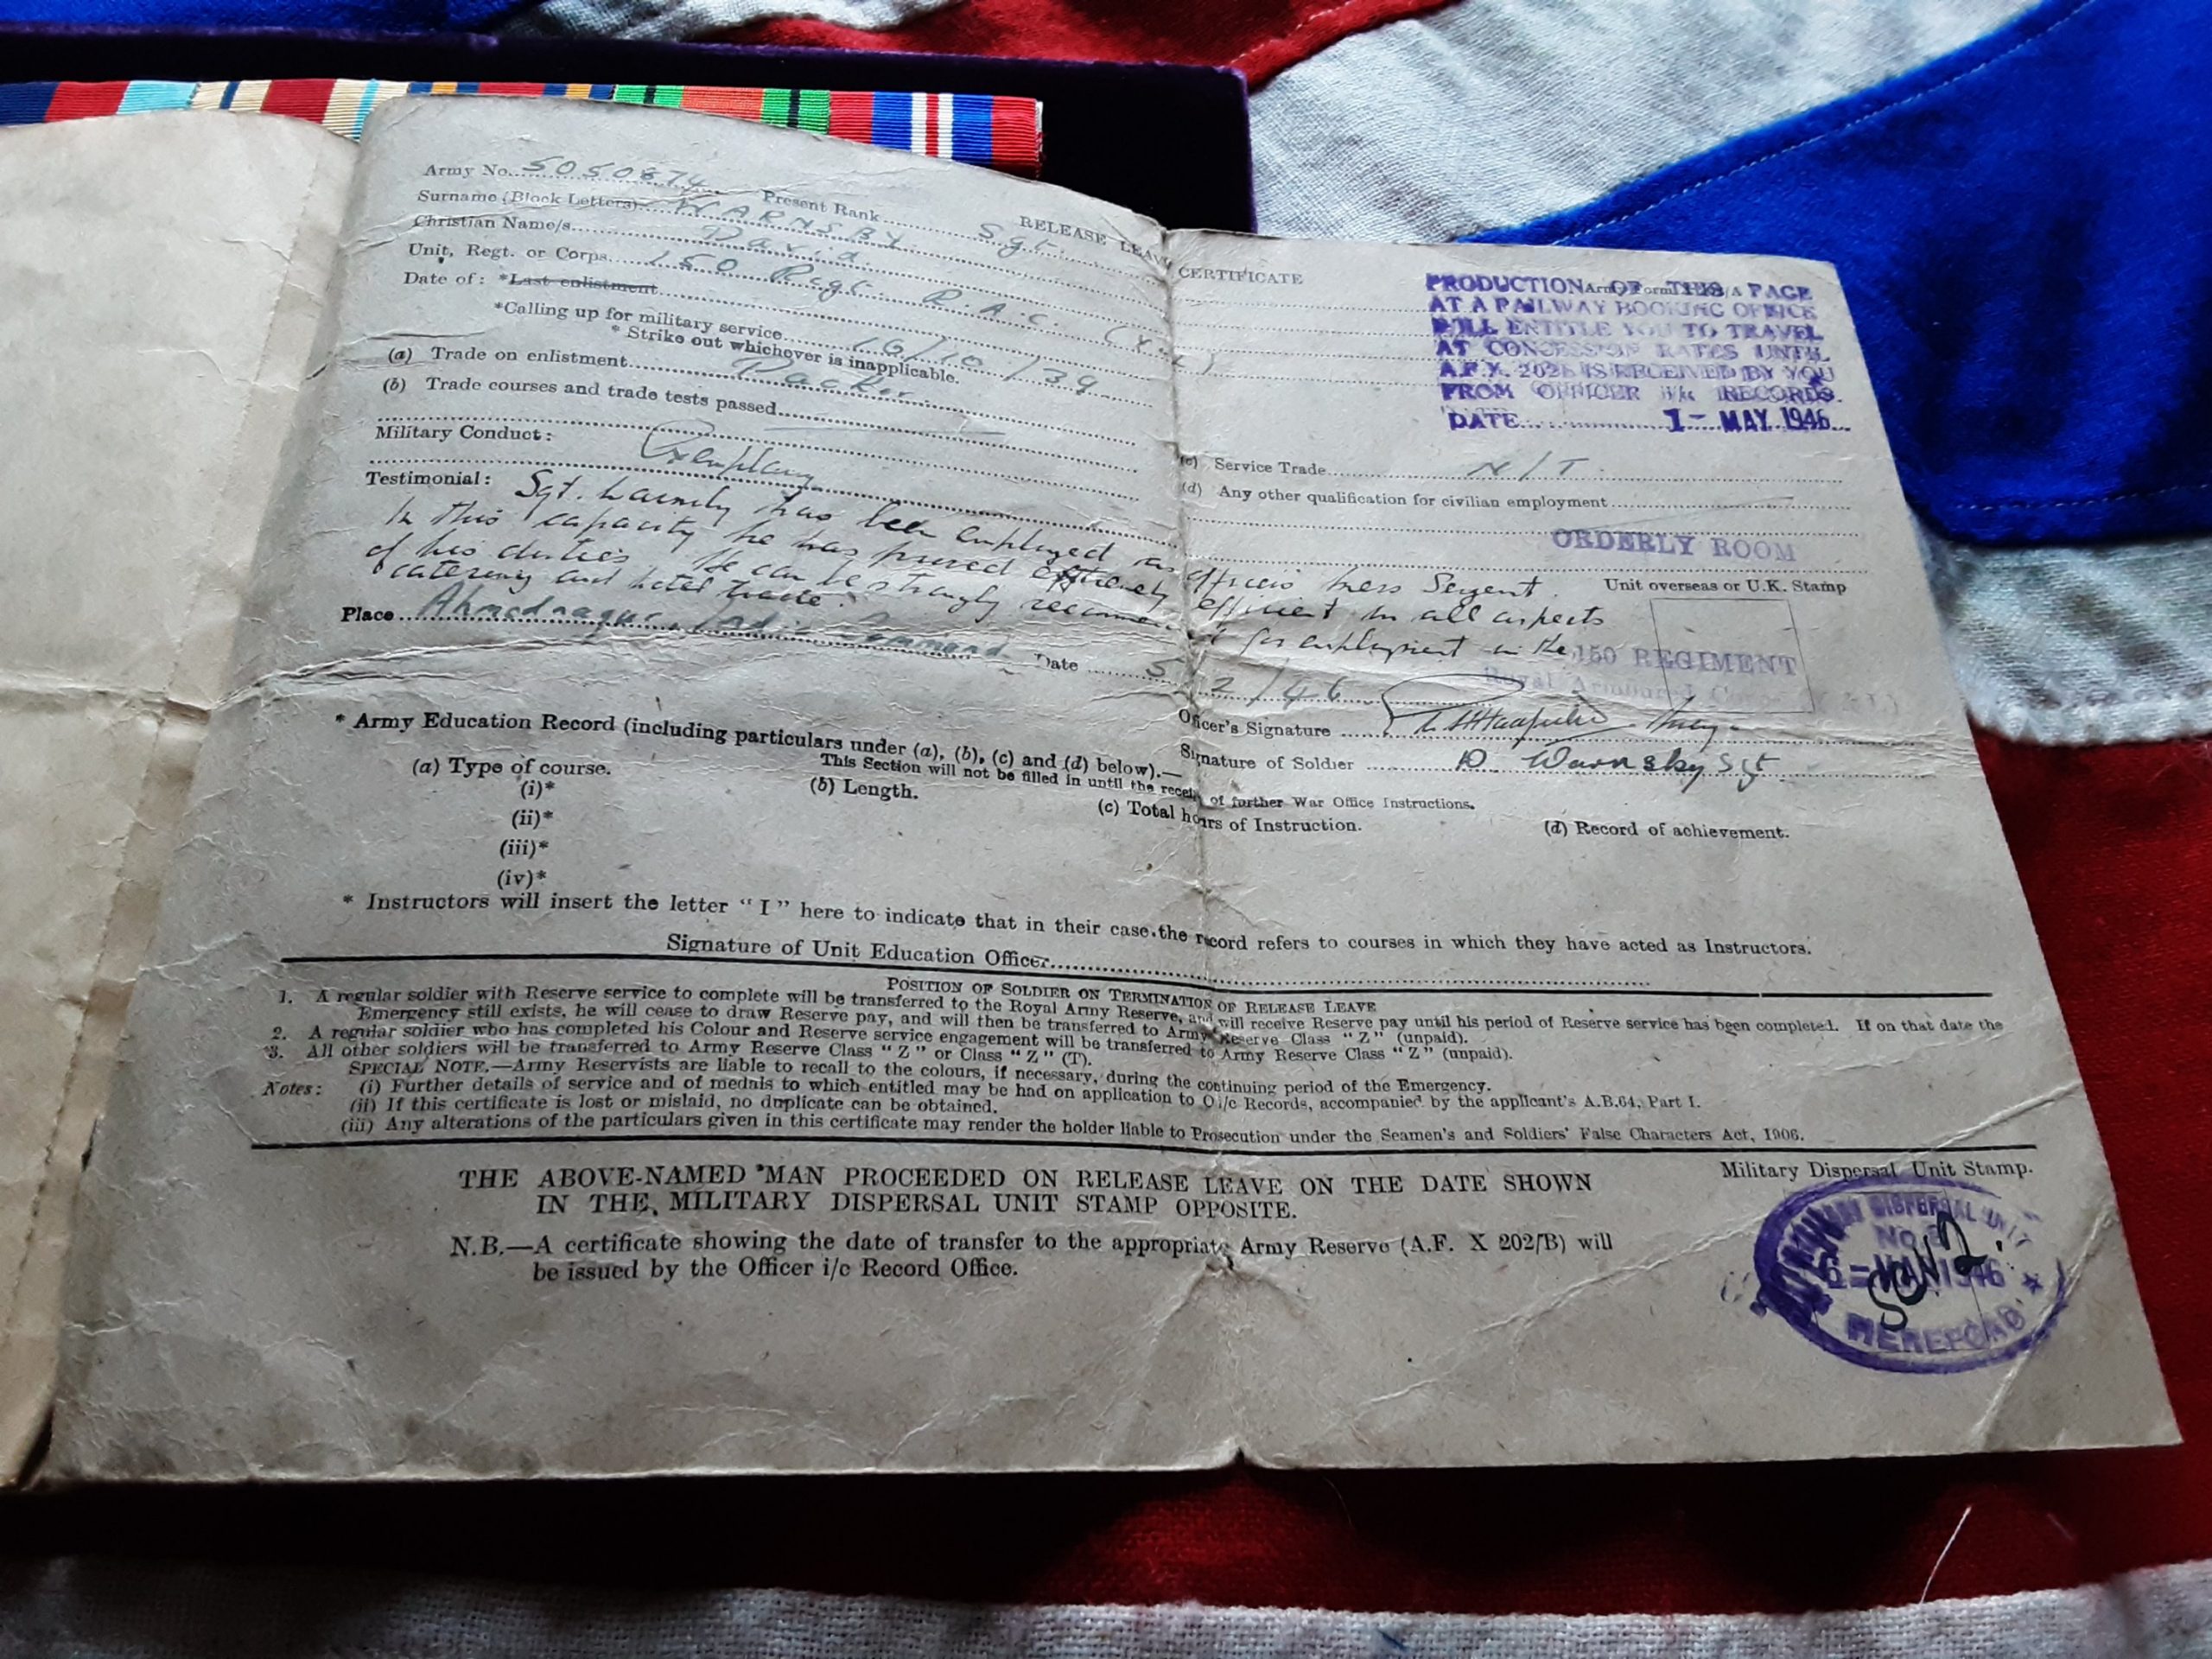 RELEASE LEAVE CERTIFICATE
Army No. 5050874 Present Rank Sgt.
Surname (Block Letters) WARNSBY
Christian Name/s David
Unit, Regt. or Corps 150 Regt. R.A.C.
Date of: *Last enlistment
*Calling up for military service 16/10/39
* Strike out whichever is inapplicable.
(a) Trade on enlistment Packer.
(b) Trade courses and trade tests passed
(c) Service Trade N/T.
(d) Any other qualification for civilian employment
PRODUCTION OF THIS PAGE
AT A RAILWAY BOOKING OFFICE
WILL ENTITLE YOU TO TRAVEL
AT CONCESSION RATES UNTIL
A.F.X. 202B IS RECEIVED BY YOU
FROM OFFICER I/c RECORDS.
DATE 1 - MAY 1946
Military Conduct: Exemplary
ORDERLY ROOM
Unit overseas or U.K. Stamp
Testimonial: Sgt. Warnsby has been employed as officers mess Sergent.
In this capacity he has proved efficient in all aspects
of his duties. He can be strongly recommended for employment in the
catering and hotel trade.
150 REGIMENT
Royal Armoured Corps
Place Ahmednagar, Command
Date 5/2/46
Officer's Signature
Signature of Soldier D. Warnsby Sgt.
* Army Education Record (including particulars under (a), (b), (c) and (d) below).—
This Section will not be filled in until the receipt of further War Office Instructions.
(a) Type of course. (b) Length. (c) Total hours of Instruction. (d) Record of achievement.
(i)*
(ii)*
(iii)*
(iv)*
* Instructors will insert the letter "I" here to indicate that in their case the record refers to courses in which they have acted as Instructors.
Signature of Unit Education Officer
POSITION OF SOLDIER ON TERMINATION OF RELEASE LEAVE
1. A regular soldier with Reserve service to complete will be transferred to the Royal Army Reserve, and will receive Reserve pay until his period of Reserve service has been completed. If on that date the
Emergency still exists, he will cease to draw Reserve pay, and will then be transferred to Army Reserve Class "Z" (unpaid).
2. A regular soldier who has completed his Colour and Reserve service engagement will be transferred to Army Reserve Class "Z" (unpaid).
3. All other soldiers will be transferred to Army Reserve Class "Z" or Class "Z" (T).
SPECIAL NOTE.—Army Reservists are liable to recall to the colours, if necessary, during the continuing period of the Emergency.
Notes: (i) Further details of service and of medals to which entitled may be had on application to O i/c Records, accompanied by the applicant's A.B.64, Part I.
(ii) If this certificate is lost or mislaid, no duplicate can be obtained.
(iii) Any alterations of the particulars given in this certificate may render the holder liable to Prosecution under the Seamen's and Soldiers' False Characters Act, 1906.
THE ABOVE-NAMED MAN PROCEEDED ON RELEASE LEAVE ON THE DATE SHOWN
IN THE MILITARY DISPERSAL UNIT STAMP OPPOSITE.
N.B.—A certificate showing the date of transfer to the appropriate Army Reserve (A.F. X 202/B) will
be issued by the Officer i/c Record Office.
Military Dispersal Unit Stamp.
DISPERSAL UNIT
1946
HEREFORD